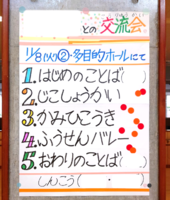 との交流会
11/8(火)②多目的ホールにて
1.はじめのことば( )
2.じこしょうかい
3.かみひこうき
4.ふうせんバレー
5.おわりのことば( )
しんこう( ・ )